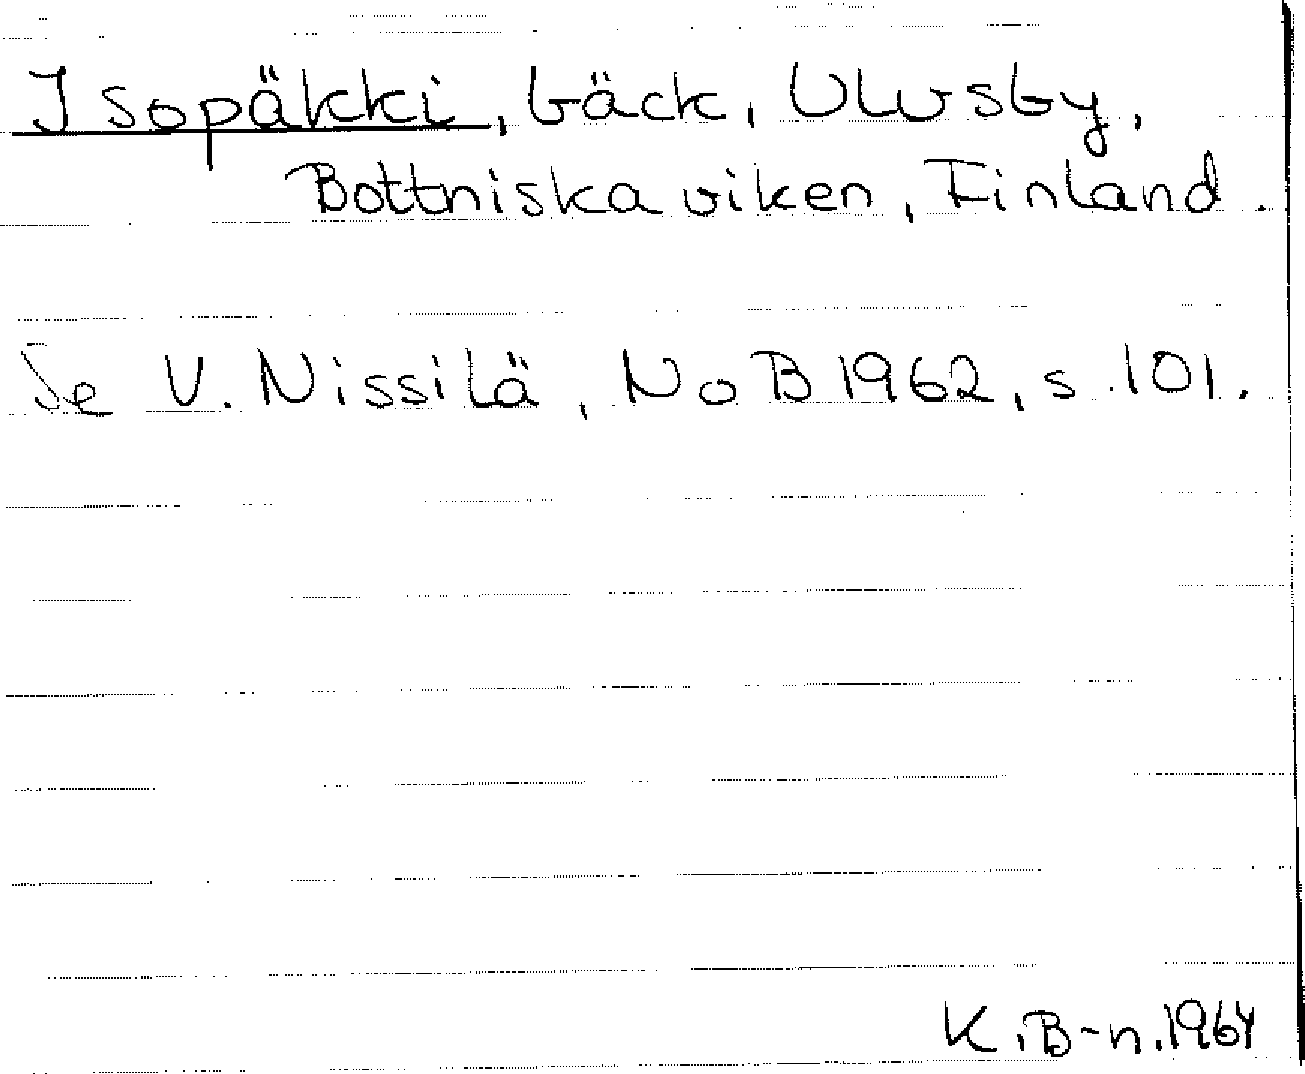 Isopäkki, bäck, Ulvsby,
Bottniska viken, Finland.
Se V. Nissilä, NoB 1962, s. 101.
K. B-n. 1964